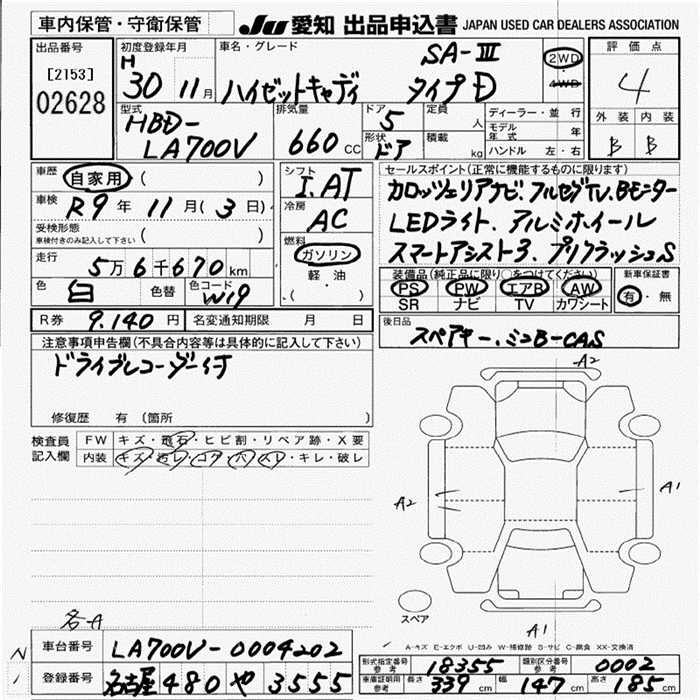 車内保管・守衛保管
JU 愛知 出品申込書 JAPAN USED CAR DEALERS ASSOCIATION
出品番号
[2153]
02628
初度登録年月
H
30 11月
車名・グレード
SA-Ⅲ
ハイゼットキャディ タイプD
2WD
・
4WD
評価点
4
外装 内装
B B
型式
HBD-
LA700V
排気量
660 CC
ドア
5
形状
ドア
定員
人
積載
kg
ディーラー・並行
モデル年式 年
ハンドル 左・右
車歴 自家用 ( )
車検 R9年 11月(3日)
受検形態
車検付きのみ記入して下さい ( )
走行 5万6千670km
色 白 色替 色コード W19
シフト
I.AT
冷房
AC
燃料
ガソリン
軽油
・( )
セールスポイント(正常に機能するものに限ります)
カロッツェリアナビ、フルセグTV、Bモニター
LEDライト、アルミホイール
スマートアシスト3、プリクラッシュS
装備品(純正品に限り○をつけてください)
PS PW エアB AW
SR ナビ TV カワシート
新車保証書
有・無
R券 9.140円 名変通知期限 月 日
後日品
スペアキー、ミニB-CAS
注意事項申告欄(不具合内容等は具体的に記入して下さい)
ドライブレコーダー付
修復歴 有 (箇所 )
検査員
記入欄
FW キズ・飛石・ヒビ割・リペア跡・X要
内装 キズ・汚レ・コゲ・穴・スレ・キレ・破レ
A2
A2
A1
スペア
A1
A-キズ E-エクボ U-凹み W-補修跡 S-サビ C-腐食 XX-交換済
各A
車台番号 LA700V-0004202
登録番号 名古屋 480 や 3555
型式指定番号
参考
18355
類別区分番号
参考
0002
車庫証明用
参考
長さ 339cm 幅 147cm 高さ 185cm